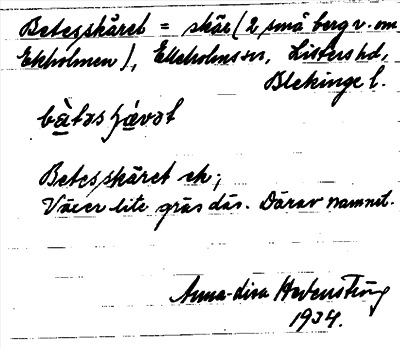 Betesskäret = skär (2 små berg v. om
Ekholmen), Elleholms sn, Listers hd,
Blekinge l.
Betesskäret ek,
Växer lite gräs där. Därav namnet.
Anna-Lisa
1934.